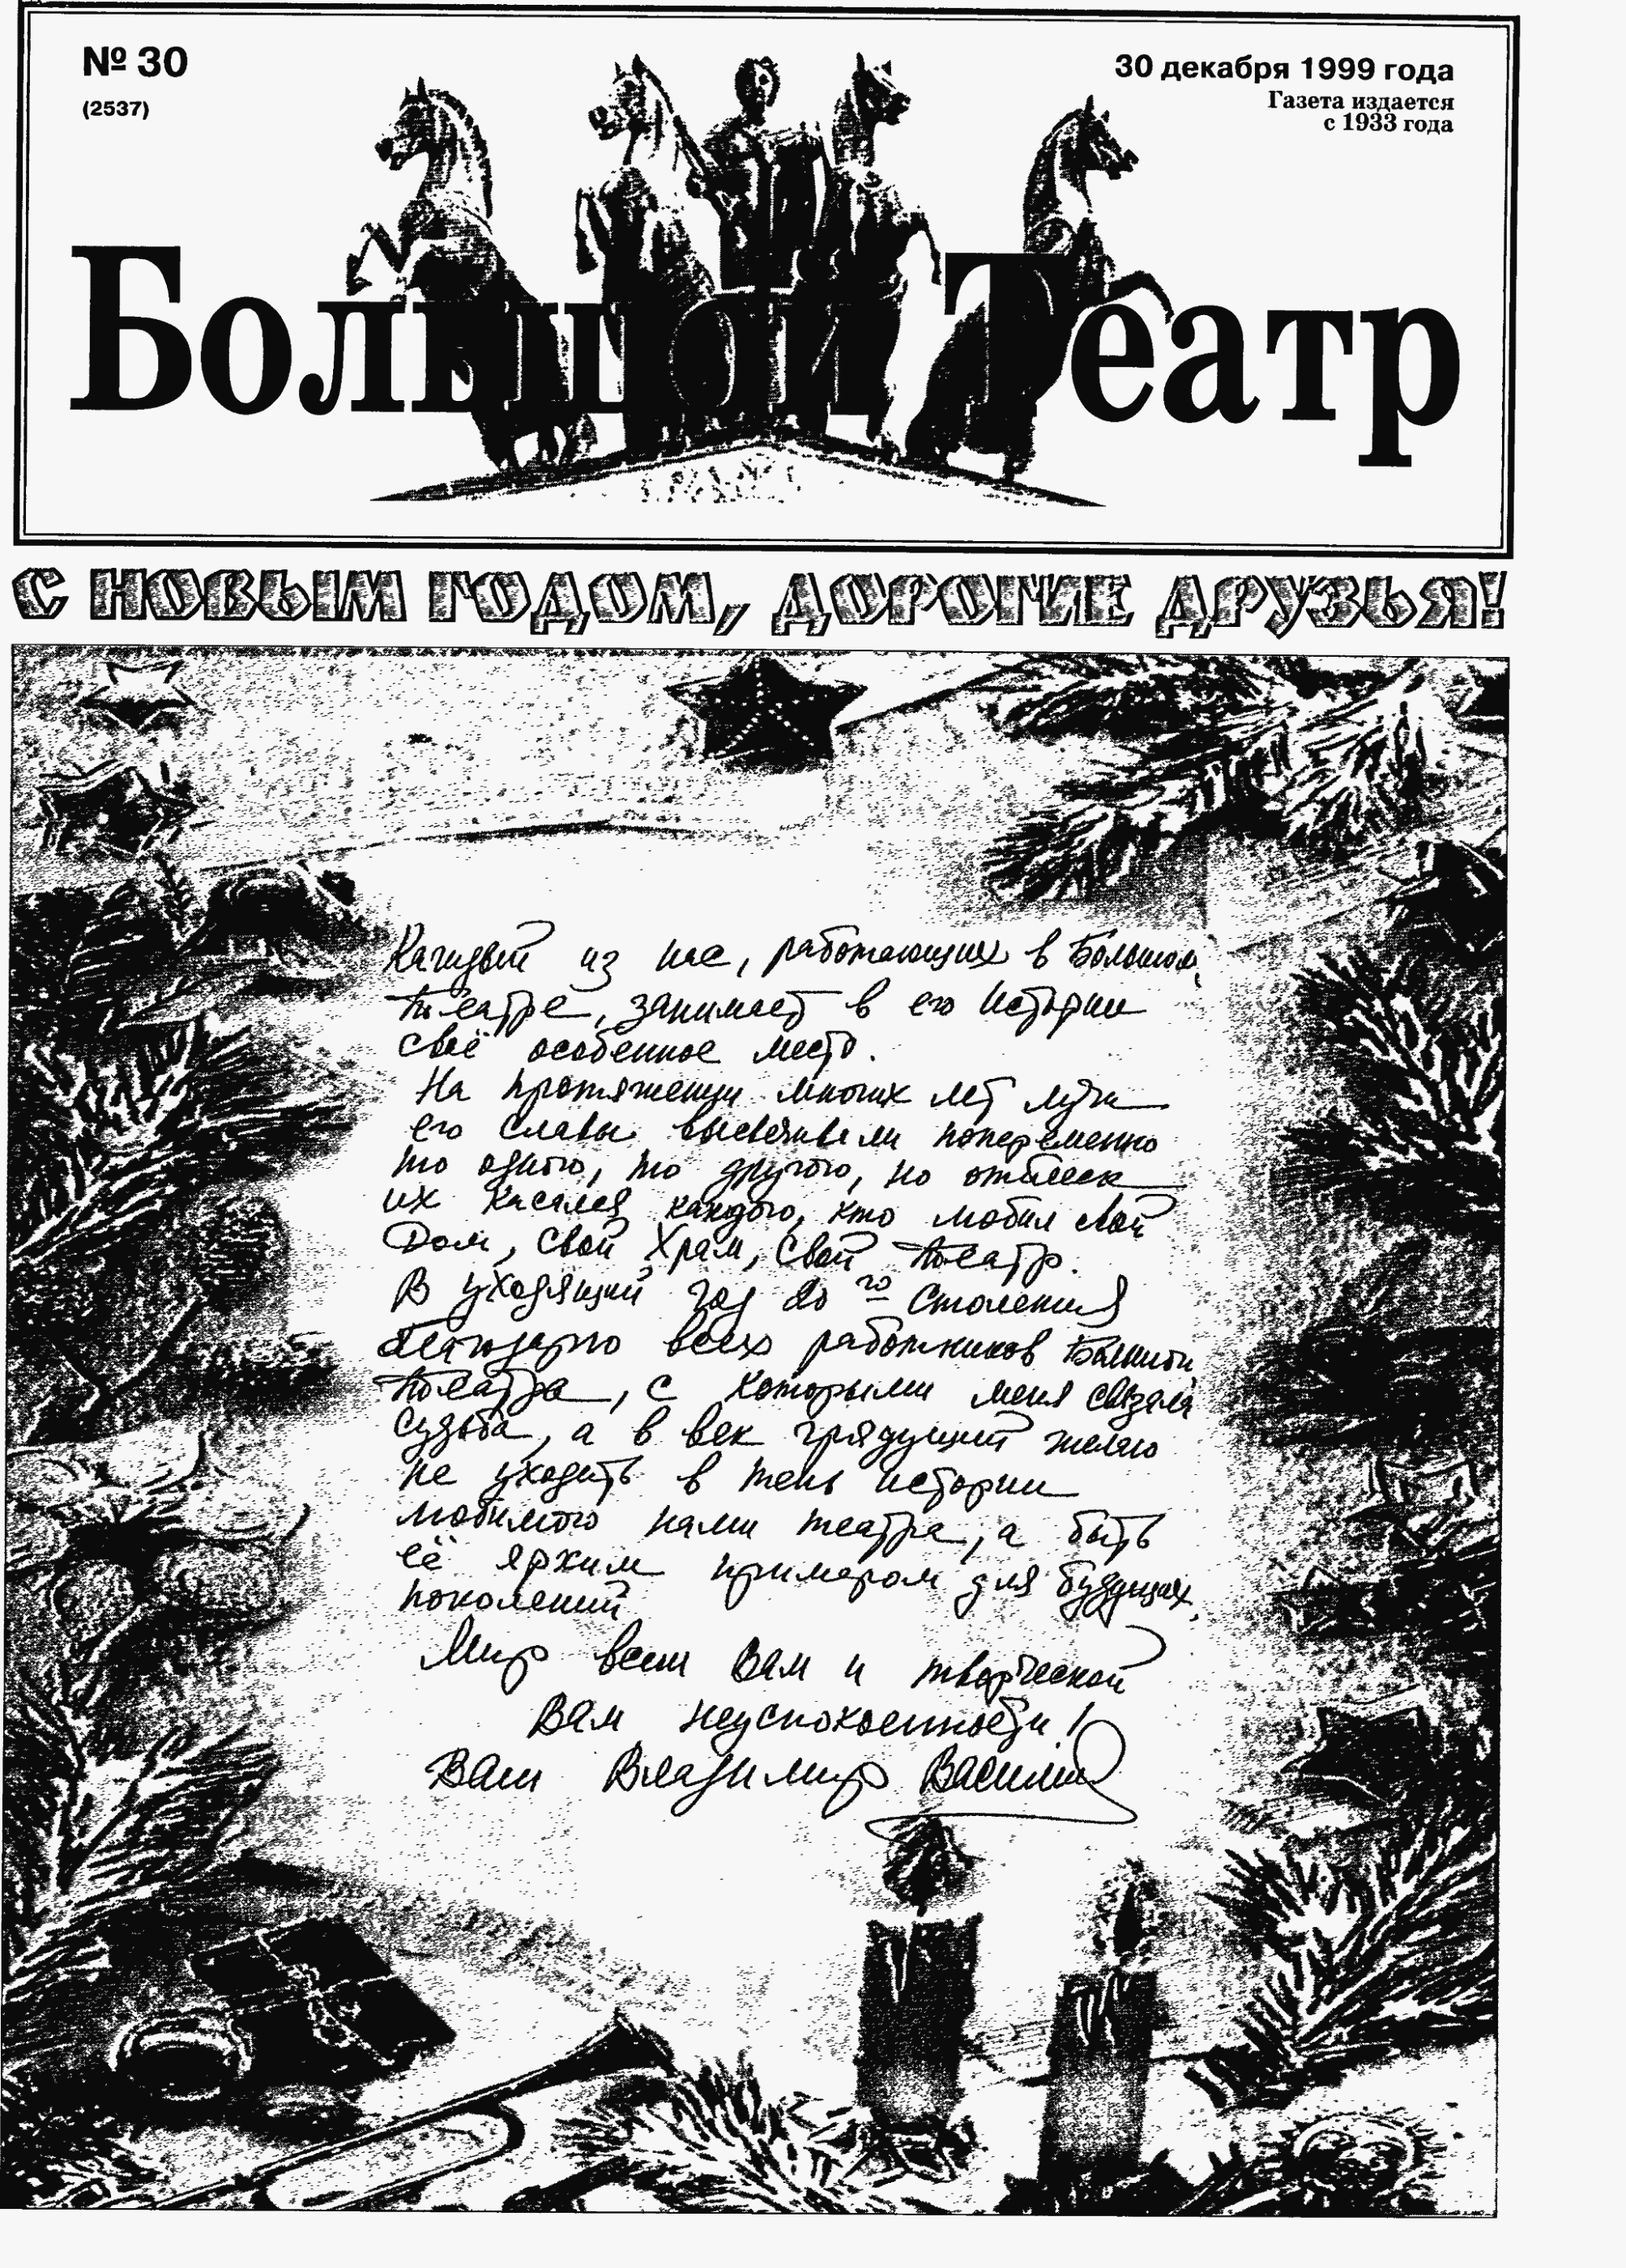 № 30
(2537)
30 декабря 1999 года
Газета издается
с 1933 года
Большой Театр
С НОВЫМ ГОДОМ, ДОРОГИЕ ДРУЗЬЯ!
Каждый из нас, работающих в Большом
театре, занимает в его истории
своё особенное место.
На протяжении многих лет лучи
его славы высвечивали попеременно
то одного, то другого, но отблеск
их касался каждого, кто любил свой
Дом, свой Храм, свой Театр.
В уходящий год 20го столетия
благодарю всех работников Большого
театра, с которыми меня связала
судьба, а в век грядущий желаю
не уходить в тень истории
любимого нами театра, а быть
её ярким примером для будущих
поколений
Мир всем Вам и творческой
Вам неуспокоенности!
Ваш Владимир Васильев